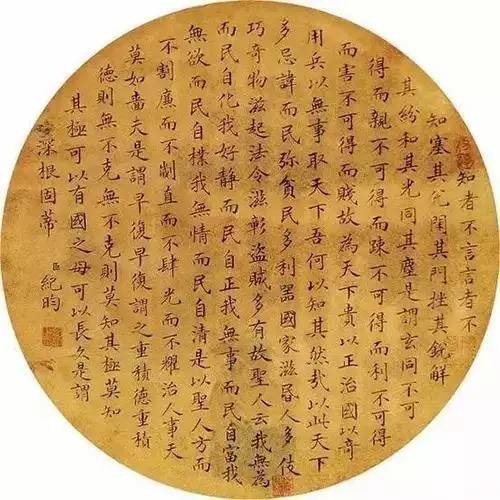 知者不言言者不
知塞其兌閉其門挫其銳解
其紛和其光同其塵是謂玄同不可
得而親不可得而踈不可得而利不可得
而害不可得而賤故為天下貴以正治國以奇
用兵以無事取天下吾何以知其然哉以此天下
多忌諱而民弥貧民多利器國家滋昏人多伎
巧奇物滋起法令滋彰盜賊多有故聖人云我無為
而民自化我好靜而民自正我無事而民自富我
無欲而民自樸我無情而民自清是以聖人方而
不割廉而不劌直而不肆光而不耀治人事天
莫如嗇夫是謂早復早復謂之重積德重積
德則無不克無不克則莫知其極莫知
其極可以有國之母可以長久是謂
深根固蒂
臣紀昀